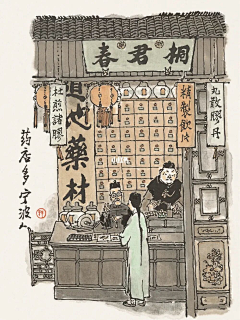 桐君春
丸散膠丹
精製飲片
道地藥材
杜煎諸膠
药店多宁波人